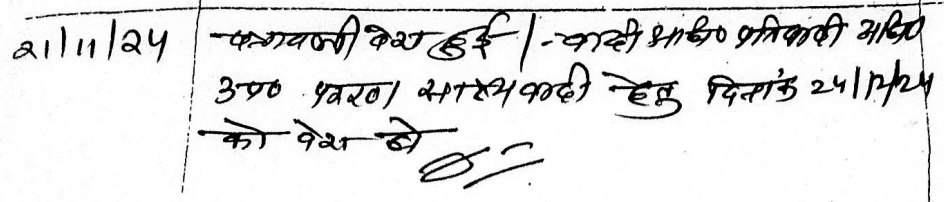 21/11/24 पत्रावली पेश हुई | वादी अधि० प्रतिवादी अधि०
उप० प्रकरण साक्ष्य वादी हेतु दिनांक 24/12/24
को पेश हो